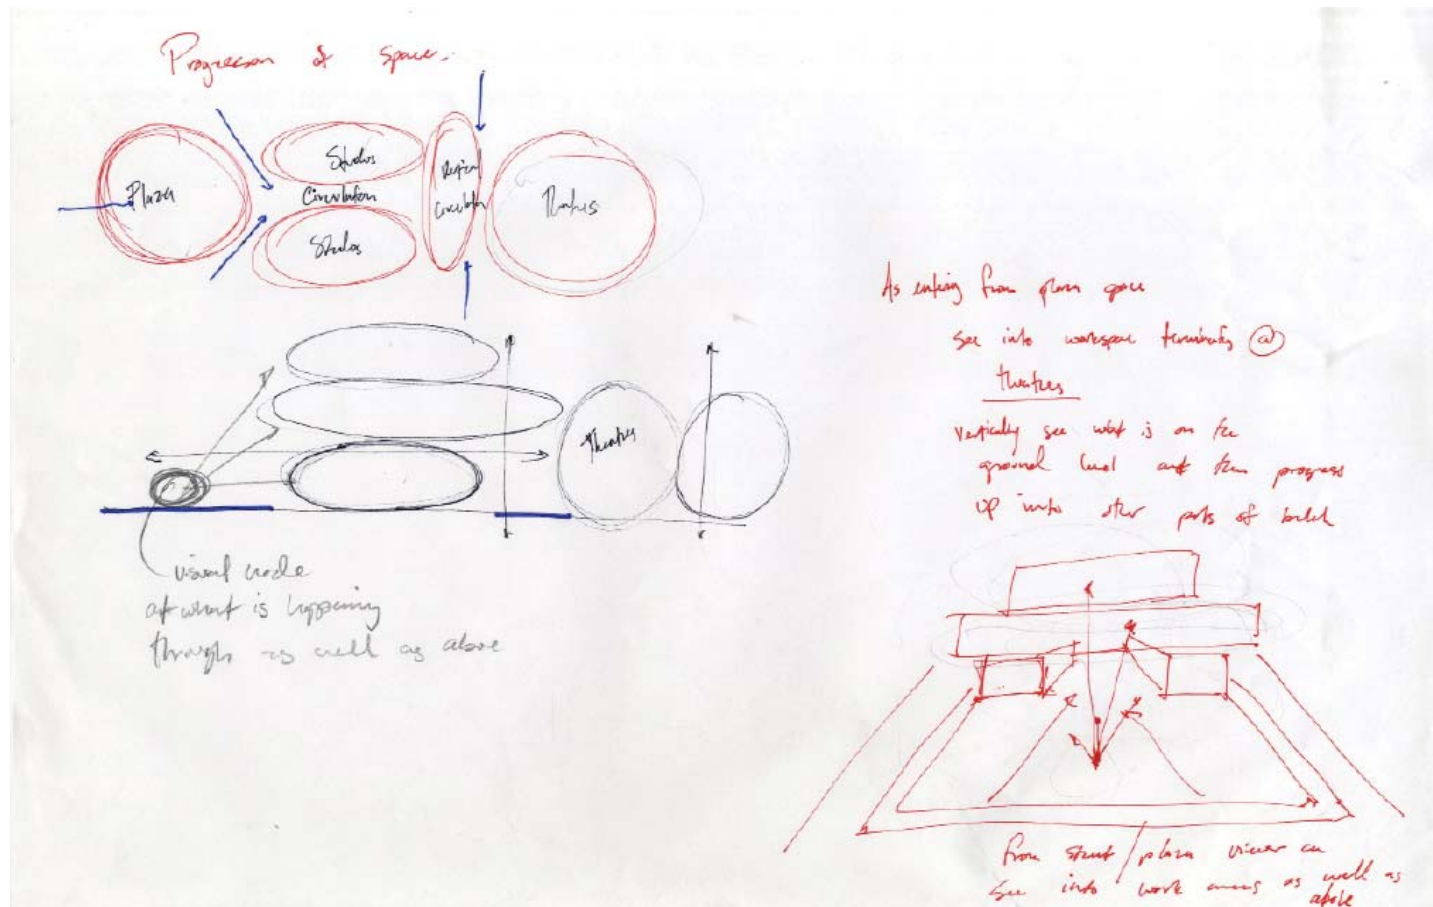 Progression of space
Studos
Plaza
Circulation
Studos
Vertical
Circulation
Theatres
Theatres
visual node
of what is happening
through as well as above
As entering from plaza space
see into workspace terminating @
theatres
vertically see what is on the
ground level and then progress
up into other parts of
from street / plaza viewer can
see into work areas as well as
above